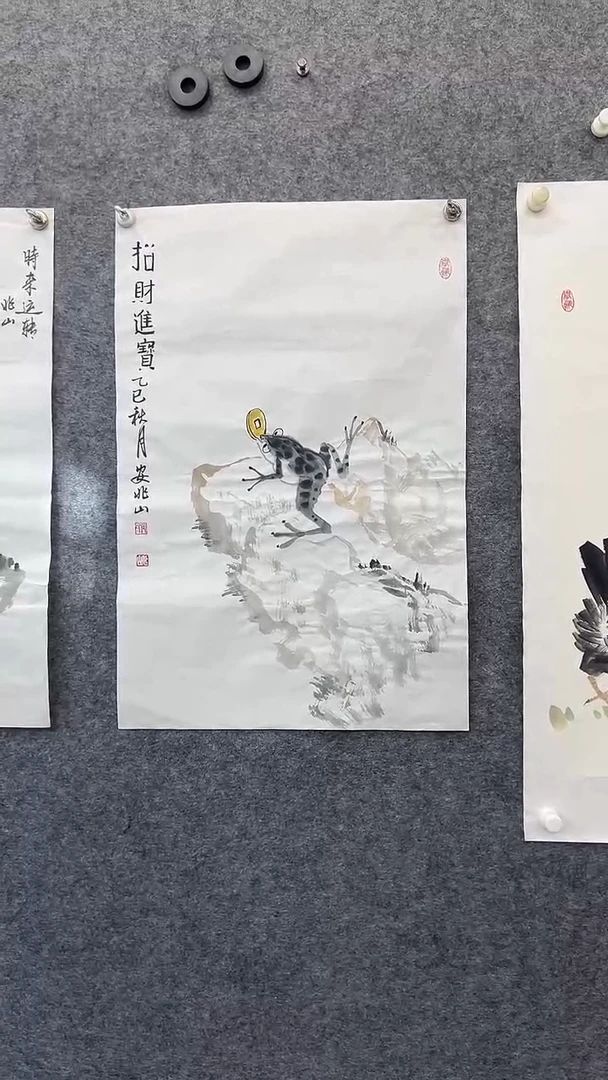 招財進寶
乙巳秋月安兆山
時来运转
兆山